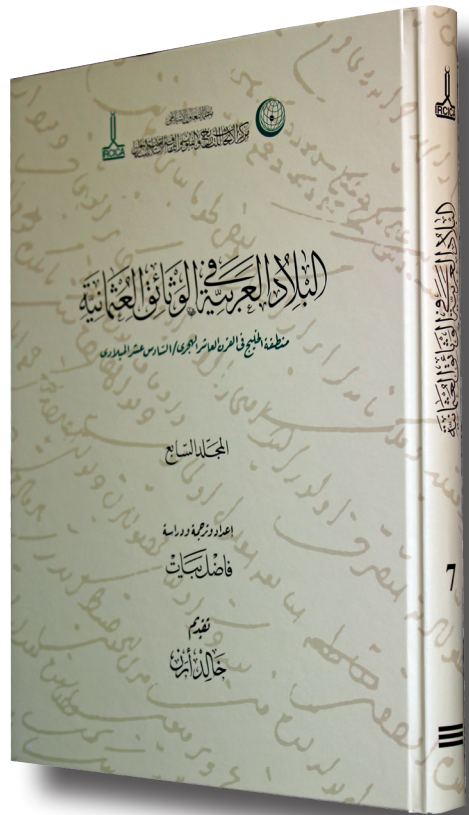 منظمة التعاون الإسلامي
مركز الأبحاث للتاريخ والفنون والثقافة الإسلامية باستانبول
IRCICA
البلاد العربية في الوثائق العثمانية
منطقة الخليج في القرن العاشر الهجري / السادس عشر الميلادي
المجلد السابع
اعداد وترجمة ودراسة
فاضل بيات
تقديم
خالد أرن
IRCICA
البلاد العربية في الوثائق العثمانية
7